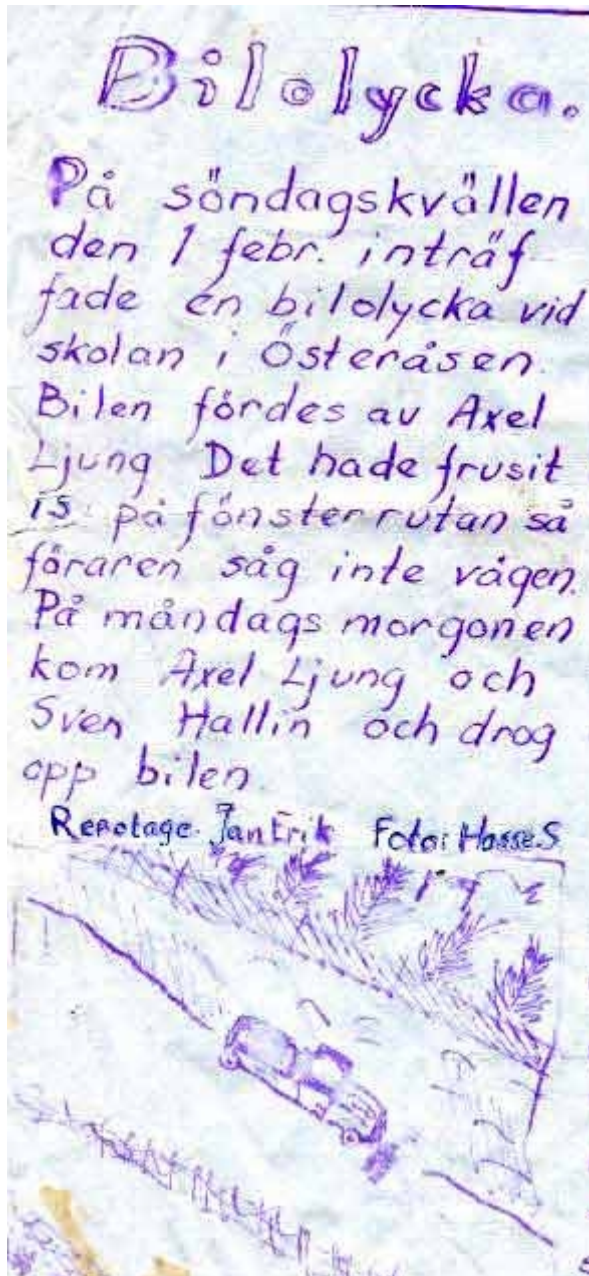 Bilolycka.
På söndagskvällen
den 1 febr. inträf
fade en bilolycka vid
skolan i Österåsen.
Bilen fördes av Axel
Ljung Det hade frusit
is på fönsterrutan så
föraren såg inte vägen.
På måndags morgonen
kom Axel Ljung och
Sven Hallin och drog
opp bilen
Repotage. Jan Erik Foto: Hasse.S